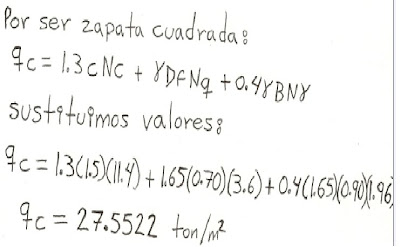 Por ser zapata cuadrada:
qc = 1.3cNc + γDfNq + 0.4γBNγ
sustituimos valores:
qc = 1.3(1.5)(11.4) + 1.65(0.70)(3.6) + 0.4(1.65)(0.90)(1.96)
qc = 27.5522 ton/m²